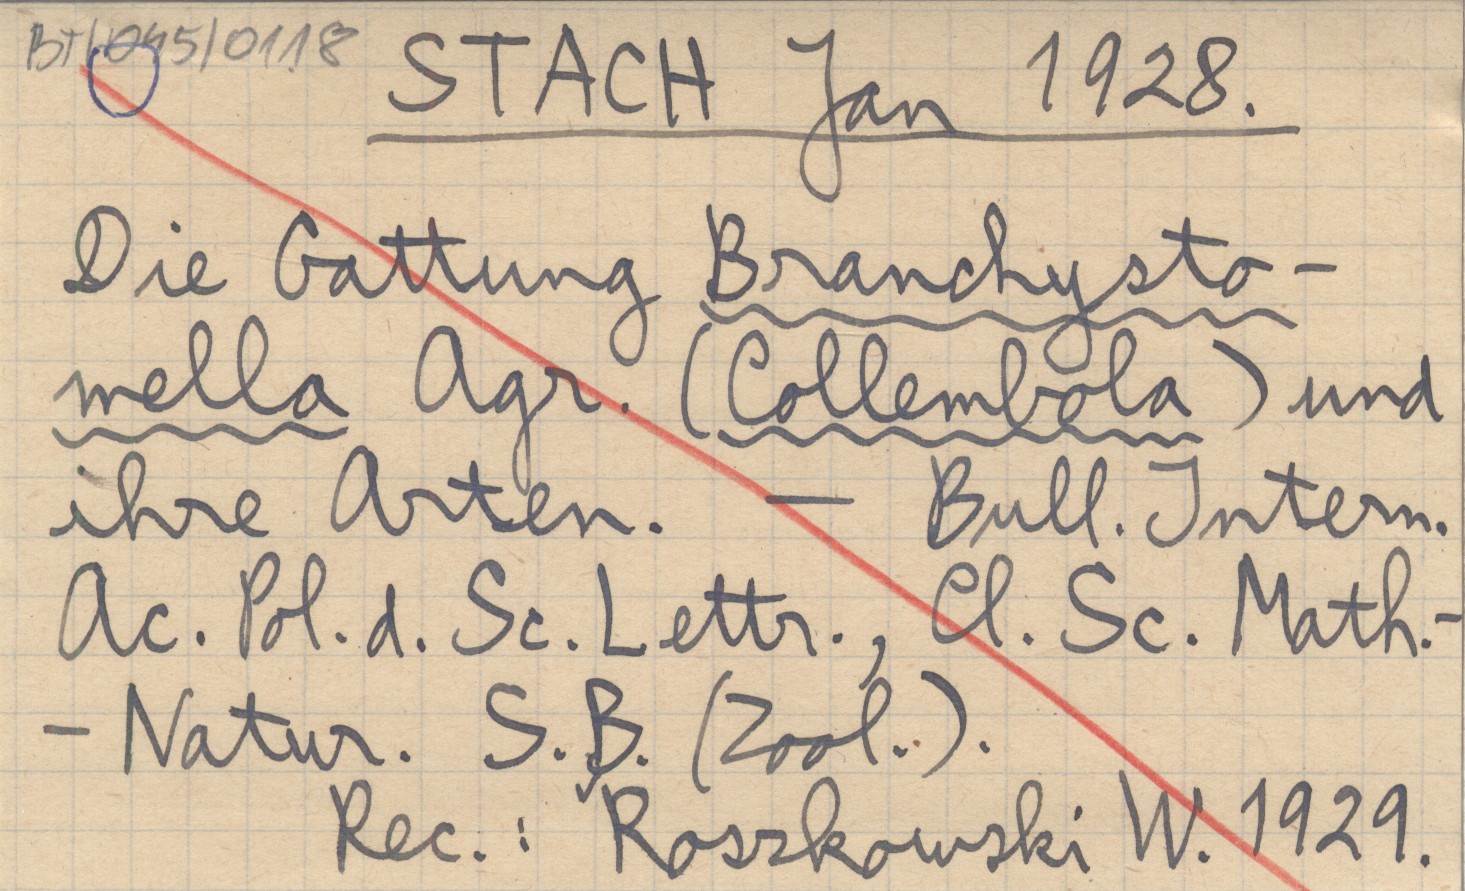 BT/045/0118
STACH Jan 1928.
Die Gattung Branchysto-
mella Agr. (Collembola) und
ihre Arten. — Bull. Intern.
Ac. Pol. d. Sc. Lettr., Cl. Sc. Math.-
- Natur. S. B. (Zool.).
Rec.: Roszkowski W. 1929.